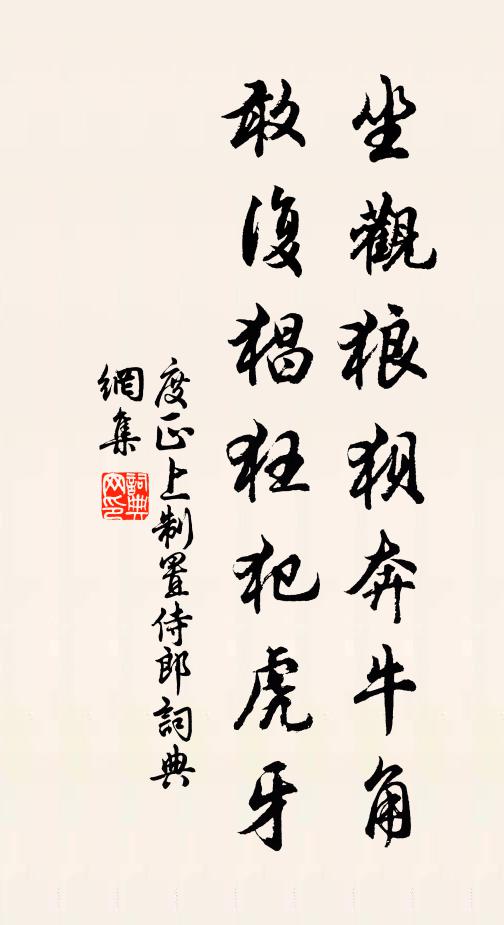 坐觀狼狽奔牛角
敢復猖狂犯虎牙
度正上制置侍郎詞典
網集
詞典
网印